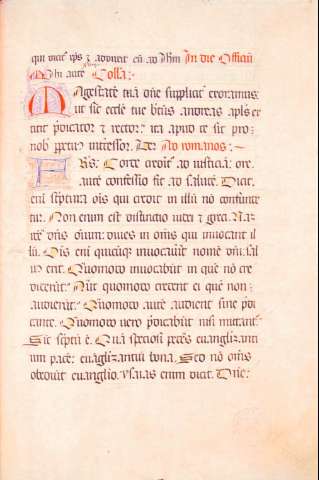 qui dicit̃ xp̃s ⁊ adduxit eũ ad Ihm̃ In die
aute Collã:
Magestatẽ tuã dñe suppliciť exoramus:
ut sic ecclẽ tue bt̃us andreas apl̃s ex
titit p̃dicator ⁊ rector: ita apud te sit pro
nob̃ ppetuꝰ intercessor. Ad romanos:
Fr̃s: Corde creditˀ ad iusticiã: ore
autẽ confessio fit ad salutẽ. Dicit
enĩ scptura oĩs qui credit in illũ nõ confunde
tur. Non enim est distinctio iudei ⁊ greci. Nã
dñs om̃iũ: diues in om̃s qui inuocant il
lũ. Oĩs enĩ quicũqꝫ inuocauit nomẽ dñi: sal
uꝰ erit. Quomodo inuocabũt in quẽ nõ cre
diderũt: Aut quomodo credent ei quẽ non
audierũt: Quomodo autẽ audient sine p̃di
cante. Quomodo uero p̃dicabũt nisi mittant̃
Sic sc̃ptũ ẽ. Quã speciosi pedes euangelizanti
um pacẽ: euãgelizantiũ bona. Sed nõ om̃s
obediũt euanglio. ysaias enim dicit. Dñe: